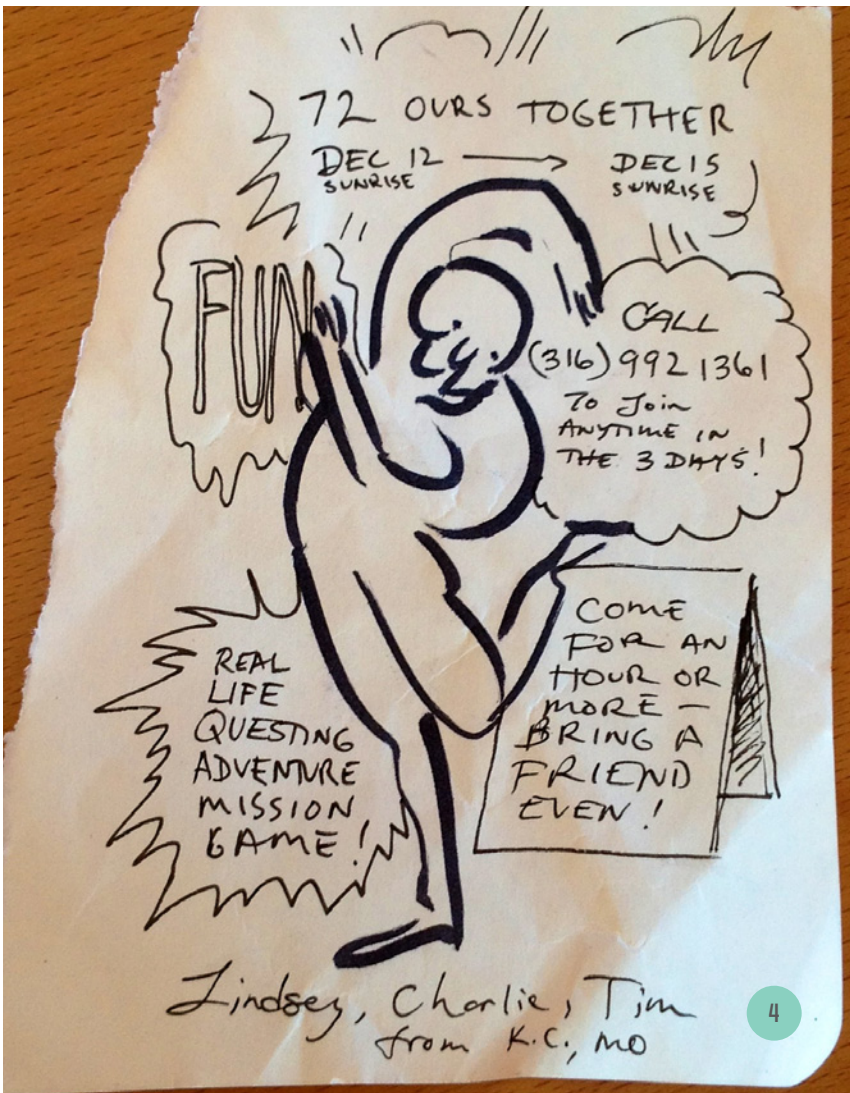 72 OURS TOGETHER
DEC 12 → DEC 15
SUNRISE SUNRISE
FUN
CALL
(316) 992 1361
TO JOIN
ANYTIME IN
THE 3 DAYS!
REAL
LIFE
QUESTING
ADVENTURE
MISSION
GAME!
COME
FOR AN
HOUR OR
MORE —
BRING A
FRIEND
EVEN!
Lindsey, Charlie, Tim
from K.C., MO
4